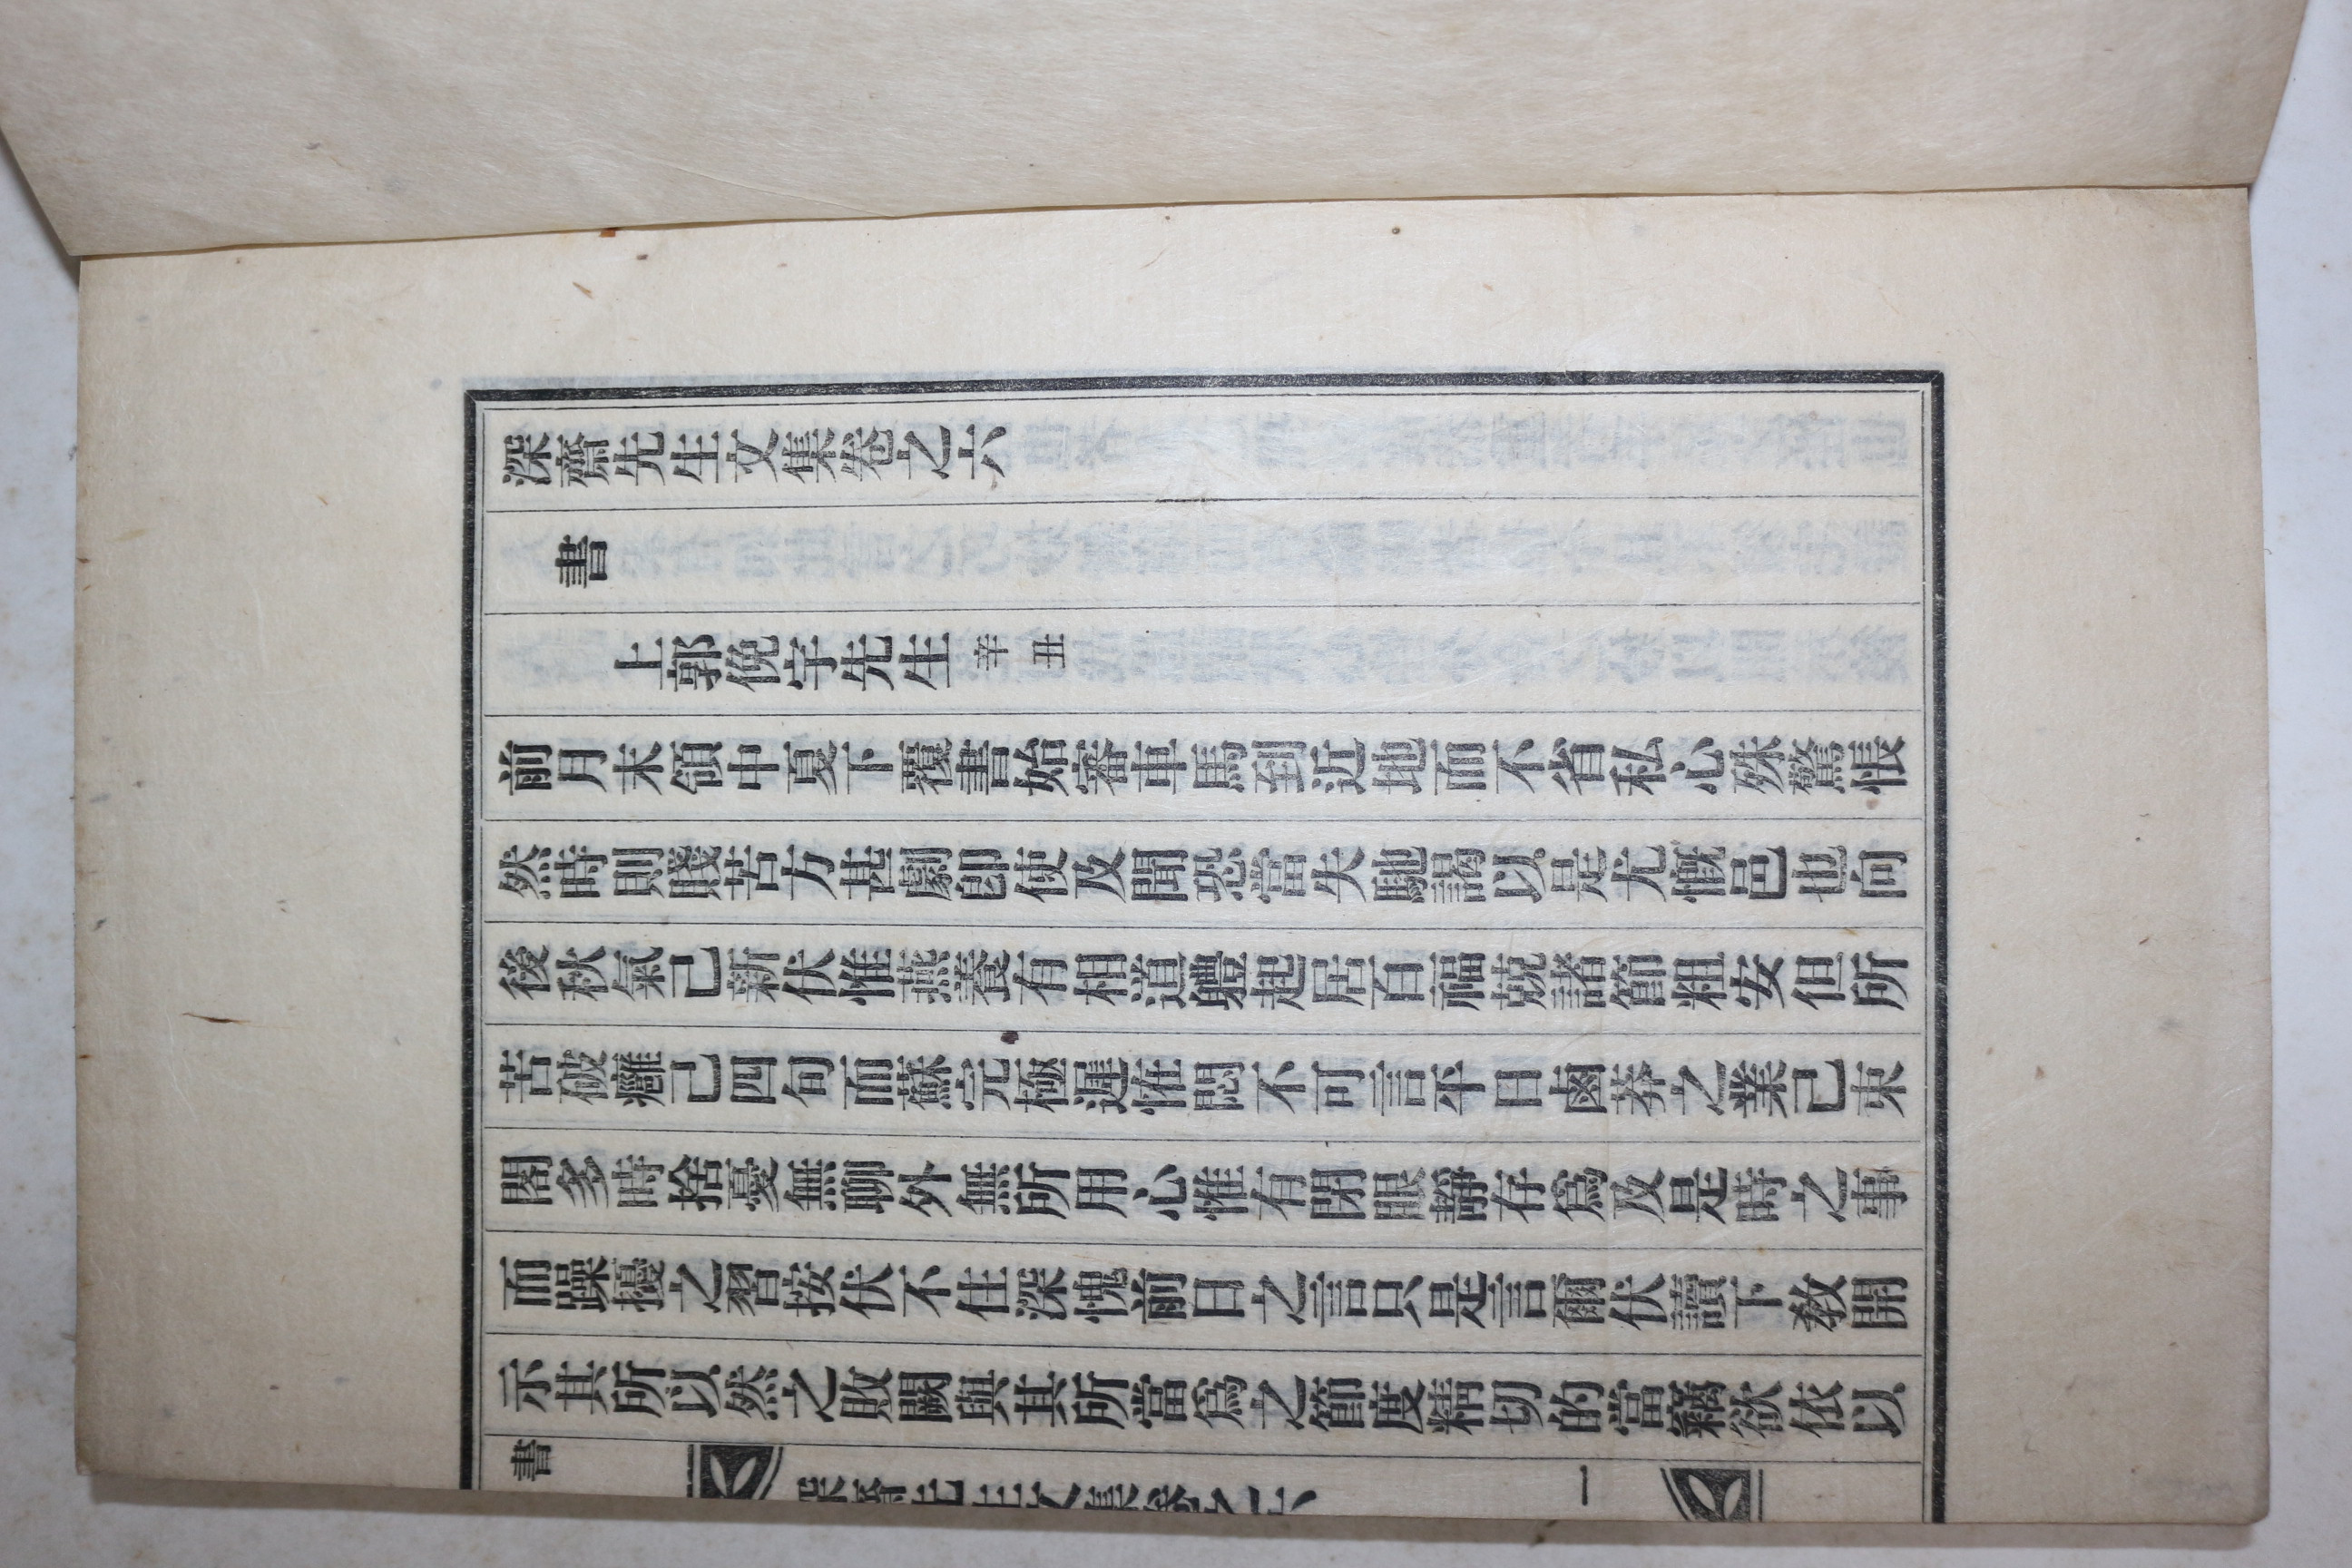 深齋先生文集卷之六
書
上郭俛宇先生 辛丑
前月末領中夏下覆書始審車馬到近地而不省私心殊驚悵
然時則賤苦方甚劇卽使及聞恐當失馳謁以是尤慨邑也向
後秋氣己新伏惟燕養有相道軆起居百福兢諸節粗安但所
苦破癰己四旬而蘇完極遲恠悶不可言平日鹵莽之業己束
閣多時捨憂無聊外無所用心惟有閉眼靜存爲及是時之事
而躁擾之習按伏不住深愧前日之言只是言爾伏讀下敎開
示其所以然之敗闕與其所當爲之節度精切的當竊欲依以
書
深齋先生文集卷之六
一